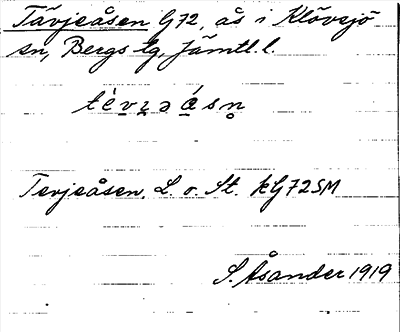 Tävjeåsen G72, ås i Klövsjö
sn, Bergs tg, Jämtl. l.
Tevjeåsen, L. o. St. kG72SM
S. Åsander 1919